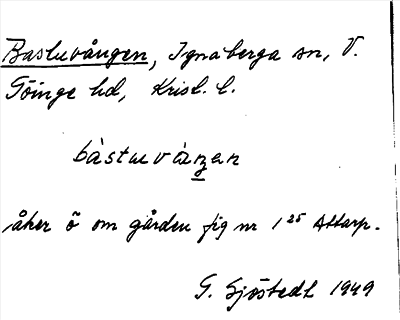 Bastuvången, Ignaberga sn, V.
Göinge hd, Krist. l.
bàstuváŋen
åker ö om gården fig nr 1²⁵ Attarp.
G. Sjöstedt 1949